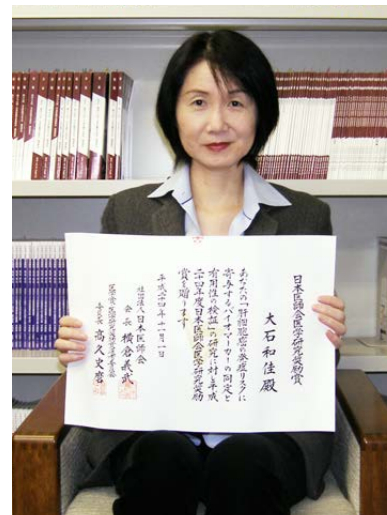 日本医師会医学研究奨励賞
大石和佳殿
あなたの「肝細胞癌の発症リスクに
寄与するバイオマーカーの同定と
有用性の検証」の研究に対し平成
二十四年度日本医師会医学研究奨励
賞を贈ります
平成二十四年十一月一日
社団法人日本医師会
会長 横倉義武
委員長 高久史麿